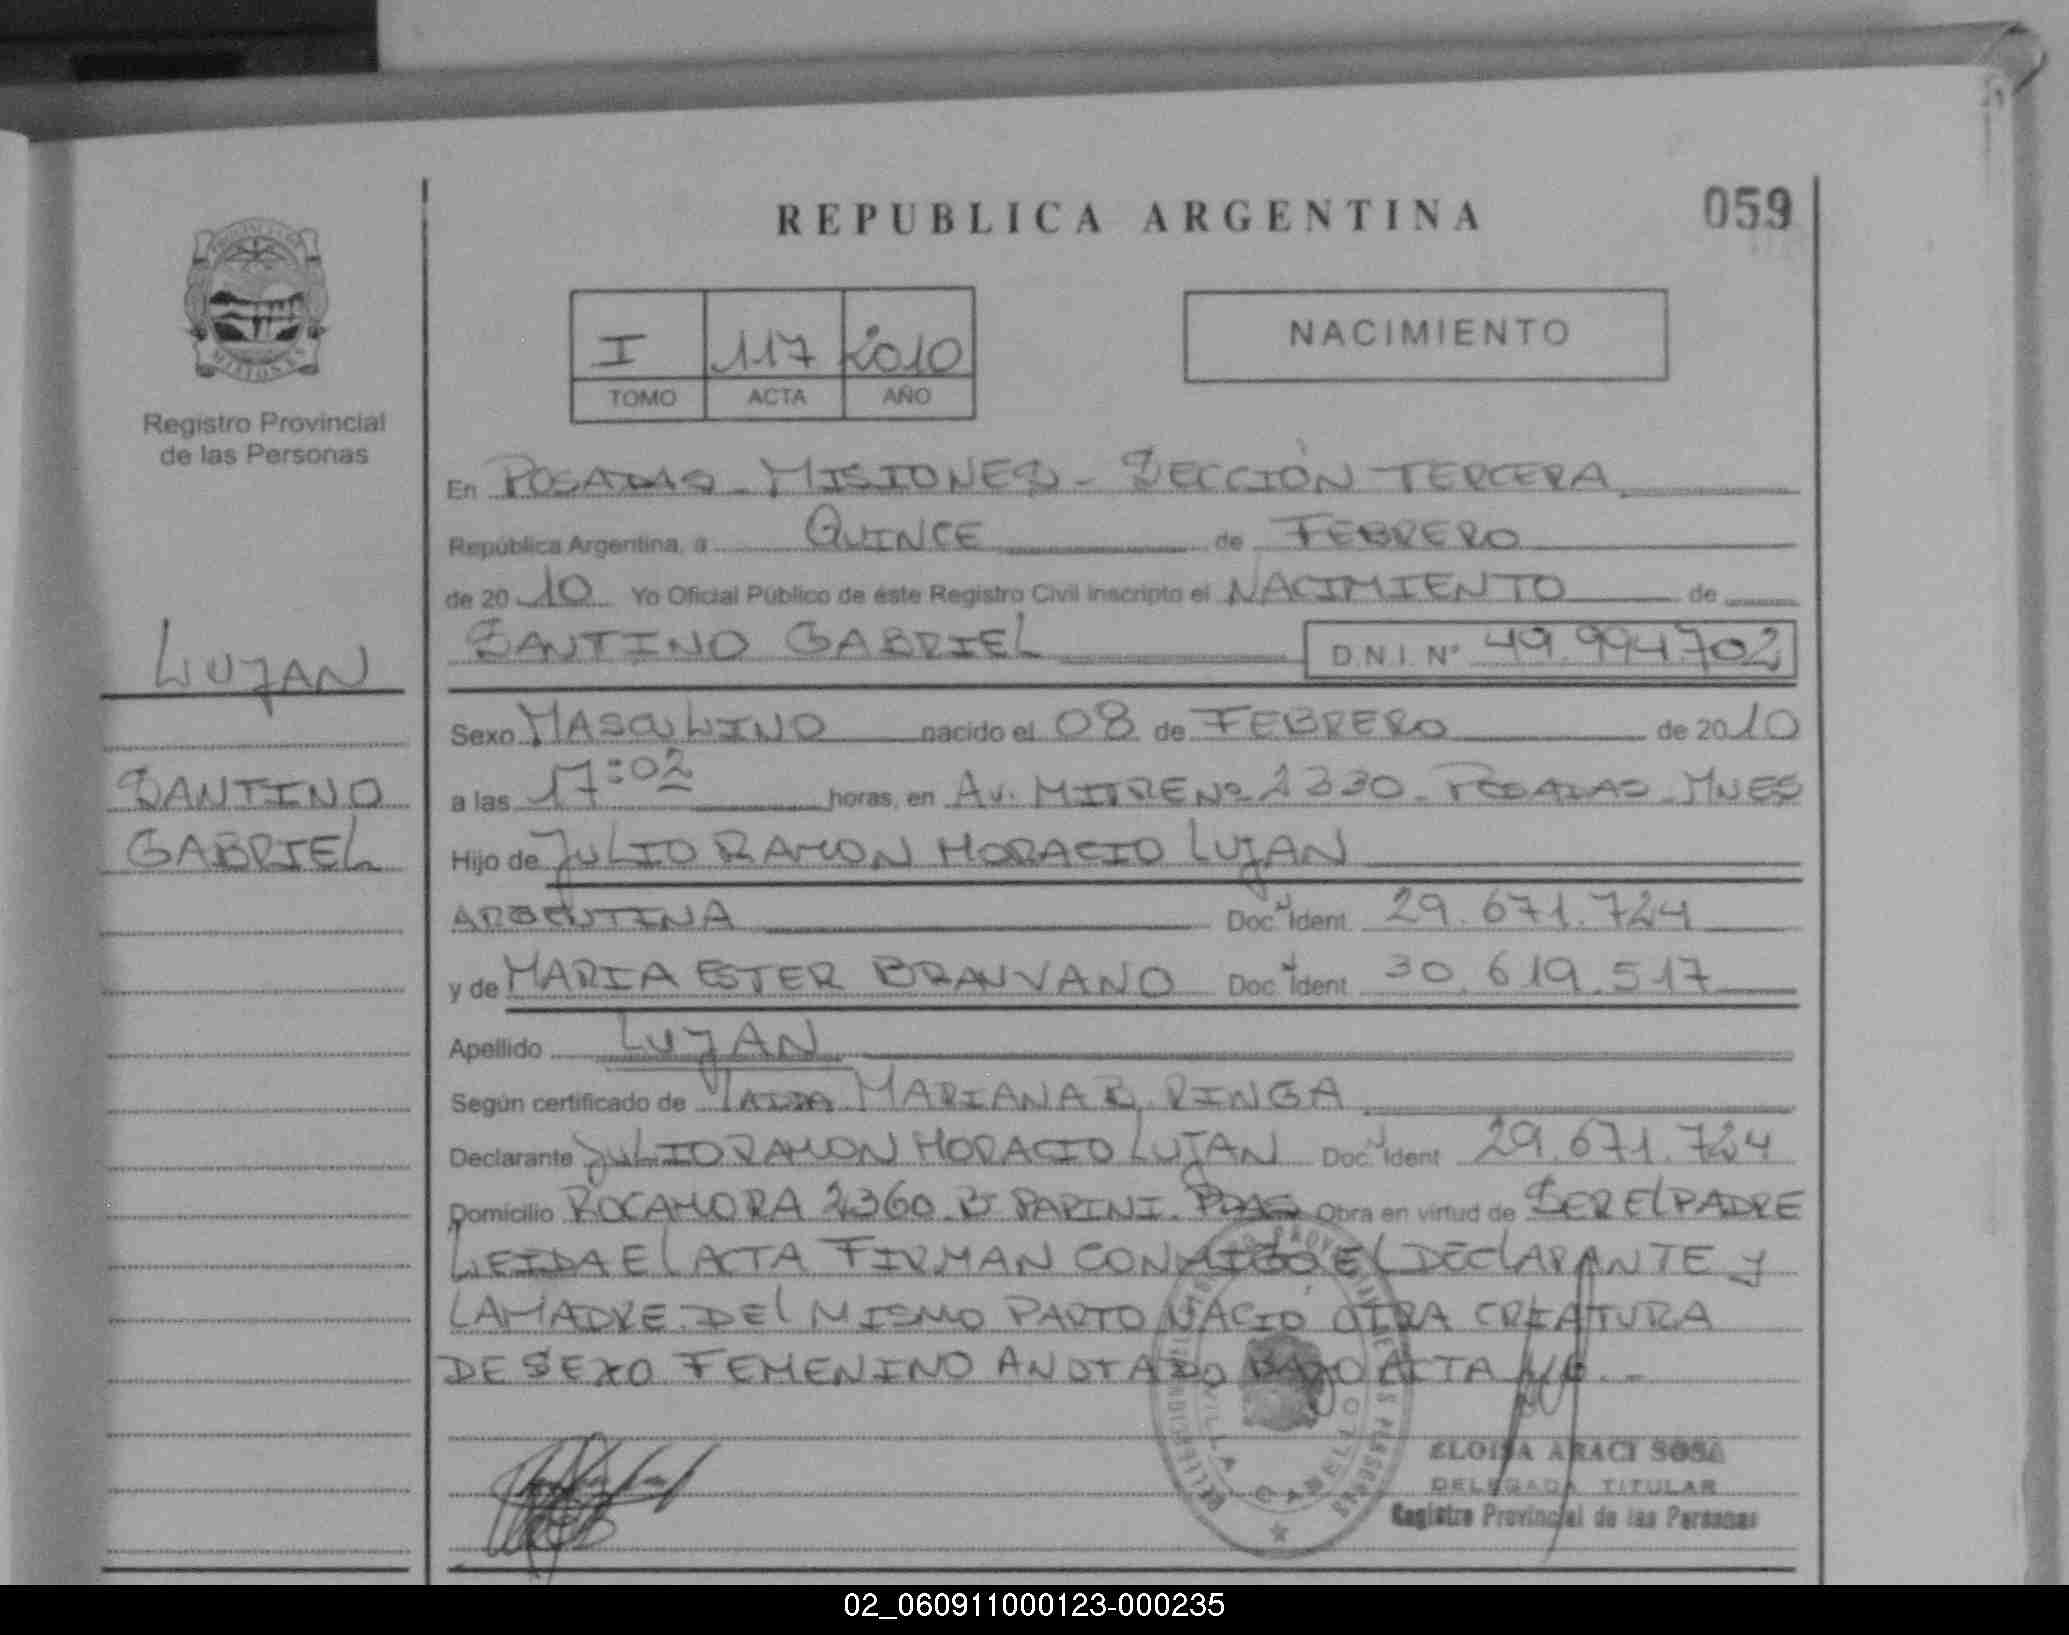 REPUBLICA ARGENTINA
059
I 117 2010
TOMO ACTA AÑO
NACIMIENTO
Registro Provincial
de las Personas
En POSADAS - MISIONES - SECCIÓN TERCERA
República Argentina, a QUINCE de FEBRERO
de 2010 Yo Oficial Público de éste Registro Civil inscripto el NACIMIENTO de
SANTINO GABRIEL D.N.I. Nº 49.994.702
LUJAN
SANTINO
GABRIEL
Sexo MASCULINO nacido el 08 de FEBRERO de 2010
a las 17:02 horas, en Av. MITRE Nº 2330 - POSADAS - MNES
Hijo de JULIO RAMON HORACIO LUJAN
ARGENTINA Doc. Ident. 29.671.724
y de MARIA ESTER Doc. Ident. 30.619.517
Apellido LUJAN
Según certificado de MARIANA B. RINGA
Declarante JULIO RAMON HORACIO LUJAN Doc. Ident 29.671.724
Domicilio ROCAMORA 2360 Bº PAPINI. PDAS Obra en virtud de SER EL PADRE
LEIDA EL ACTA FIRMAN CONMIGO EL DECLARANTE Y
LA MADRE. DEL MISMO PARTO NACIÓ OTRA CRIATURA
DE SEXO FEMENINO ANOTADO BAJO ACTA
VILLA CABELLO
ELOISA ARACI SOSA
DELEGADA TITULAR
Registro Provincial de las Personas
02_060911000123-000235